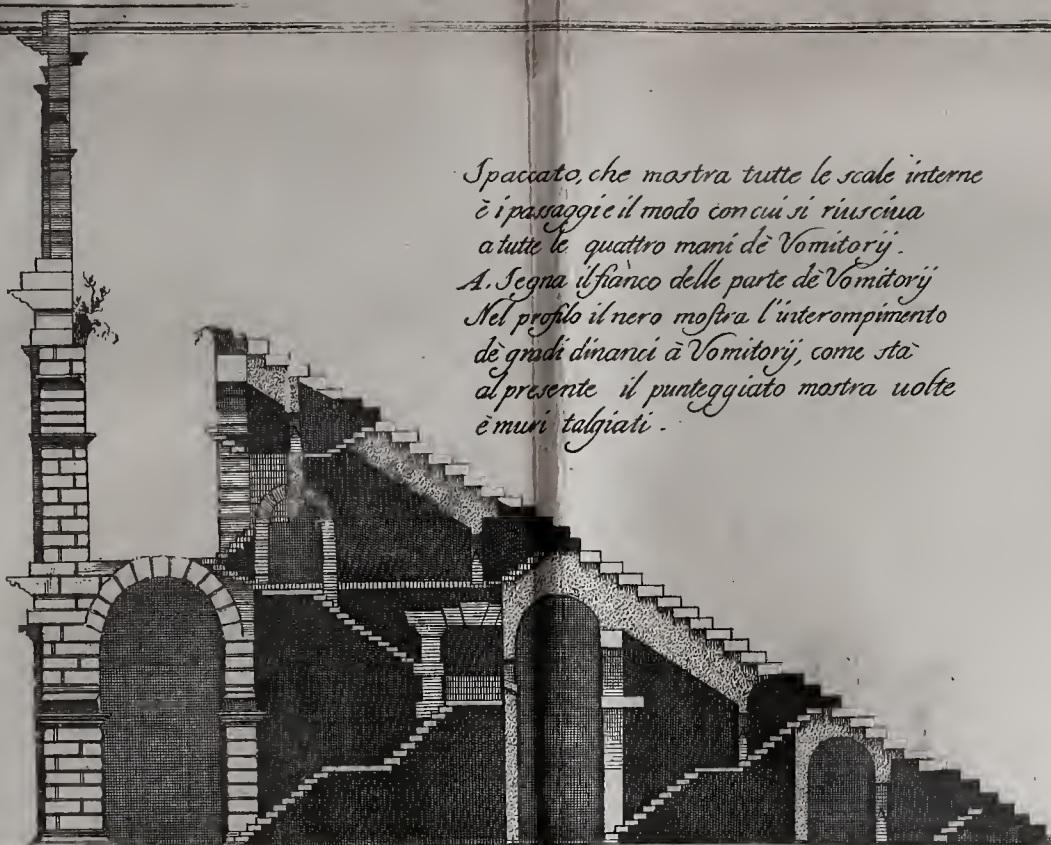 Spaccato, che mostra tutte le scale interne
è i passaggi e il modo con cui si riusciua
a tutte le quattro mani dè Vomitorij.
A. Segna il fianco delle parte dè Vomitorij
Nel profilo il nero mostra l'interompimento
dè gradi dinanci à Vomitorij, come stà
al presente il punteggiato mostra uolte
è muri talgiati.